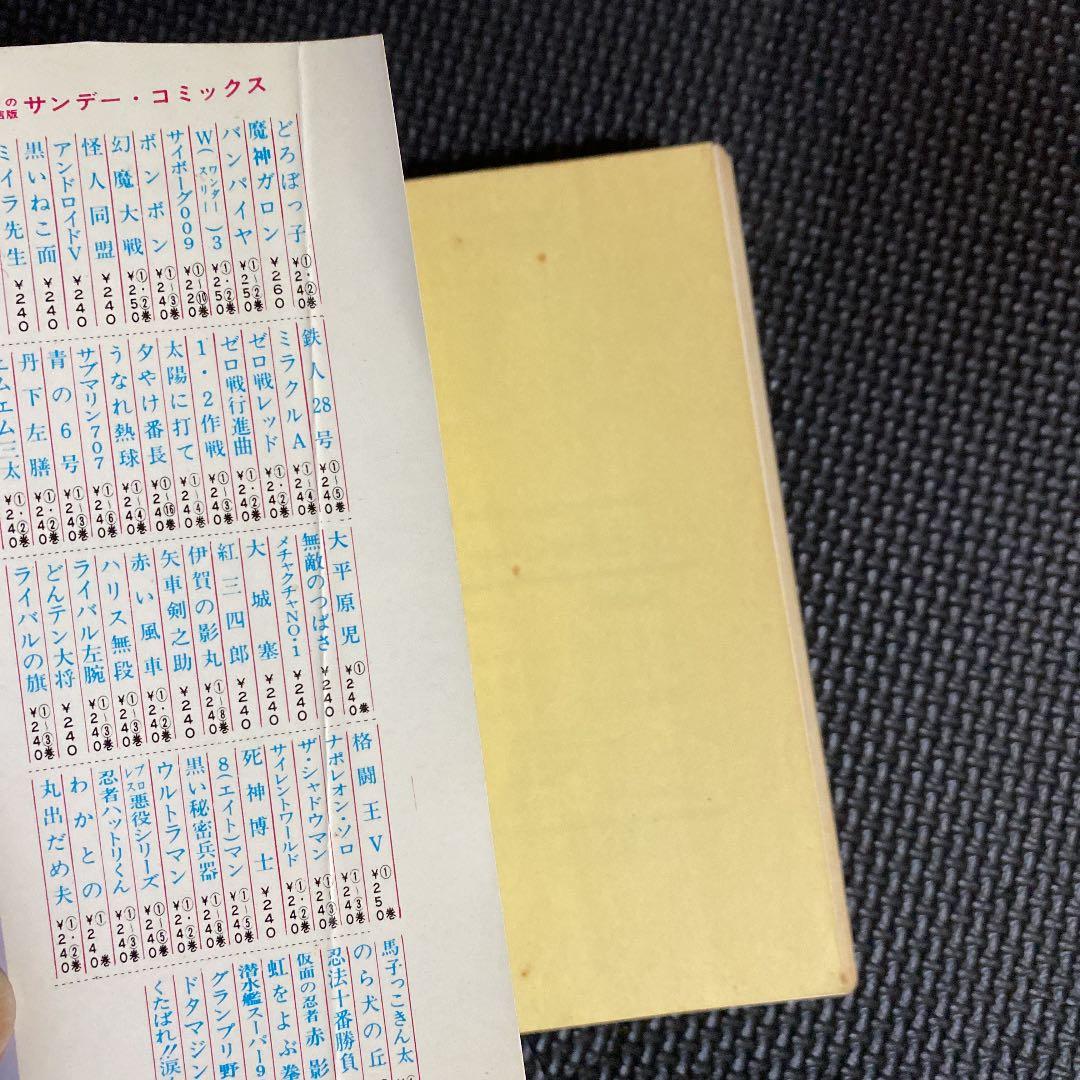 サンデー・コミックス
どろぼっ子 ①・②巻 ¥240
魔神ガロン ¥260
バンパイヤ ①〜②巻 ¥250
W(ワンダースリー)3 ①・②巻 ¥250
サイボーグ009 ①〜⑩巻 ¥220
ボンボン ①〜③巻 ¥240
幻魔大戦 ①・②巻 ¥250
怪人同盟 ¥240
アンドロイドV ¥240
黒いねこ面 ¥240
ミイラ先生 ¥240
鉄人28号 ①〜⑤巻 ¥240
ミラクルA ①〜④巻 ¥240
ゼロ戦レッド ①・②巻 ¥240
ゼロ戦行進曲 ①・②巻 ¥240
1・2作戦 ①〜③巻 ¥240
太陽に打て ①〜④巻 ¥240
夕やけ番長 ①〜⑯巻 ¥240
うなれ熱球 ①〜④巻 ¥240
サブマリン707 ①〜⑥巻 ¥240
青の6号 ①〜③巻 ¥240
丹下左膳 ①・②巻 ¥240
エムエム三太 ①・②巻 ¥240
大平原児 ①巻 ¥240
無敵のつばさ ¥240
メチャクチャNO・1 ¥240
大城塞 ¥240
紅三四郎 ¥240
伊賀の影丸 ①〜⑧巻 ¥240
矢車剣之助 ¥240
赤い風車 ①・②巻 ¥240
ハリス無段 ①〜③巻 ¥240
ライバル左腕 ①〜③巻 ¥240
どんテン大将 ¥240
ライバルの旗 ①〜③巻 ¥240
格闘王V ①巻 ¥250
ナポレオン・ソロ ①〜③巻 ¥240
ザ・シャドウマン ①〜③巻 ¥240
サイレントワールド ①・②巻 ¥240
死神博士 ¥240
8(エイト)マン ①〜⑤巻 ¥240
黒い秘密兵器 ①〜⑧巻 ¥240
ウルトラマン ①・②巻 ¥240
プロレス悪役シリーズ ①〜⑤巻 ¥240
忍者ハットリくん ①〜③巻 ¥240
わかとの ①巻 ¥240
丸出だめ夫 ①・②巻 ¥240
馬子っこきん太
のら犬の丘
忍法十番勝負
仮面の忍者赤影
虹をよぶ拳
潜水艦スーパー9
グランプリ野
ドタマジン
くたばれ!!涙